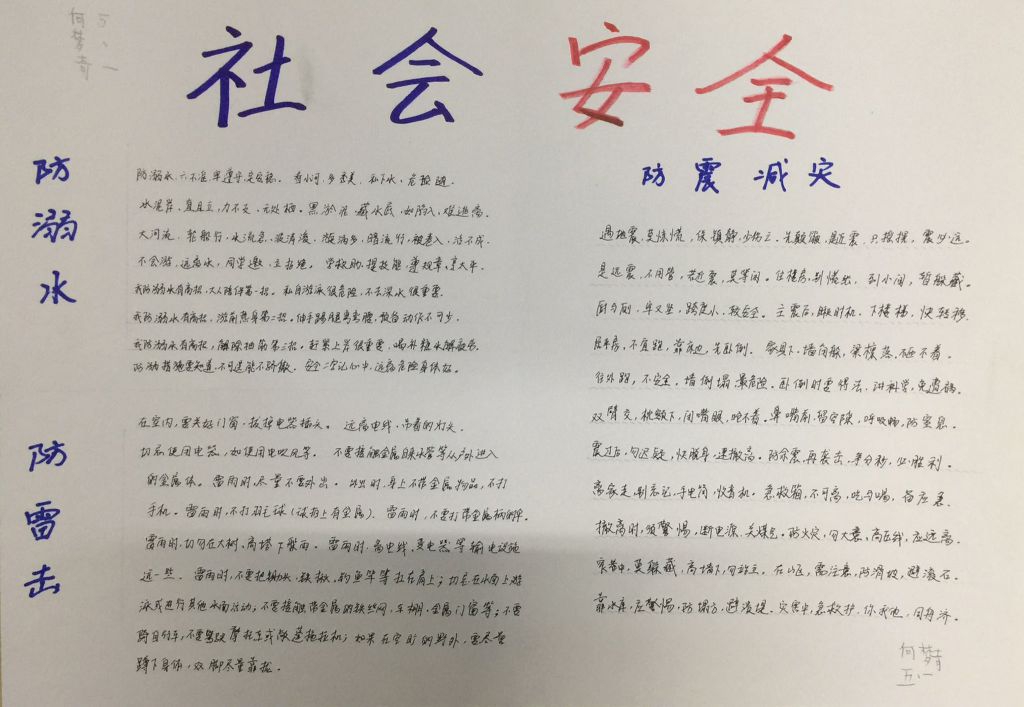 五、一
何梦奇
社会安全
防溺水
防溺水,六不准,牢遵守,是合格。有小河,乡亲美,私下水,危险随。
水泥岸,直且立,力不支,无处栖。黑淤泥,藏水底,如陷入,难逃离。
大河流,轮船行,水流急,波涛凌,漩涡多,暗流行,被卷入,活不成。
不会游,远离水,同学邀,立拒绝。学救助,提技能,遵规章,享太平。
我防溺水有高招,大人陪伴第一招。私自游泳很危险,不去深水很重要。
我防溺水有高招,游前热身第二招。伸手踢腿弯弯腰,热身动作不可少。
我防溺水有高招,解除抽筋第三招,赶紧上岸很重要,喝杯糖水解疲劳。
防溺措施要知道,不可逞能不骄傲。安全二字记心中,远离危险身体好。
防雷击
在室内,雷击关门窗,拔掉电器插头。远离电线,吊着的灯头。
切忌使用电器,如使用电吹风等。不要接触金属自来水管等从户外进入
的金属体。雷雨时,尽量不要外出。外出时,身上不带金属物品,不打
手机。雷雨时,不打羽毛球(球拍上有金属)。雷雨时,不要打带金属柄的伞。
雷雨时,切勿在大树,高塔下躲雨。雷雨时,离电线,变电器等输电设施
远一些。雷雨时,不要把锄头,铁锹,钓鱼竿等扛在肩上;切忌在水面上游
泳或进行其他水面活动;不要接触带金属的铁丝网,车棚,金属门窗等;不要
骑自行车,不要驾驶摩托车或敞蓬拖拉机;如果在空旷的野外,要尽量
蹲下身体,双脚尽量靠拢。
防震减灾
遇地震,莫惊慌,保镇静,少伤亡。先颠簸,是近震,只摇摆,震必远。
是远震,不用管,若近震,莫等闲。住楼房,别慌出,到小间,暂躲藏。
厨与厕,牢又坐,跨度小,较安全。主震后,瞅时机,下楼梯,快转移。
居平房,不宜跑,靠床边,先卧倒。家具下,墙角散,梁檩落,砸不着。
往外跑,不安全,墙倒塌,最危险。卧倒时,要得法,讲科学,免遭祸。
双臂交,枕额下,闭嘴眼,呛不着。鼻嘴前,留空隙,呼吸畅,防窒息。
震过后,勿迟疑,快脱身,速撤离。防余震,再袭击,争分秒,必胜利。
离家走,别忘记,手电筒,收音机。急救箱,不可离,吃与喝,备应急。
撤离时,须警惕,断电源,关煤气。防火灾,勿大意,高压线,应远离。
窄巷中,莫躲藏,高墙下,勿站立。在山区,需注意,防滑坡,避滚石。
靠水库,应警惕,防塌方,避溃堤。灾害中,急救护,你我他,同舟济。
何梦奇
五、一